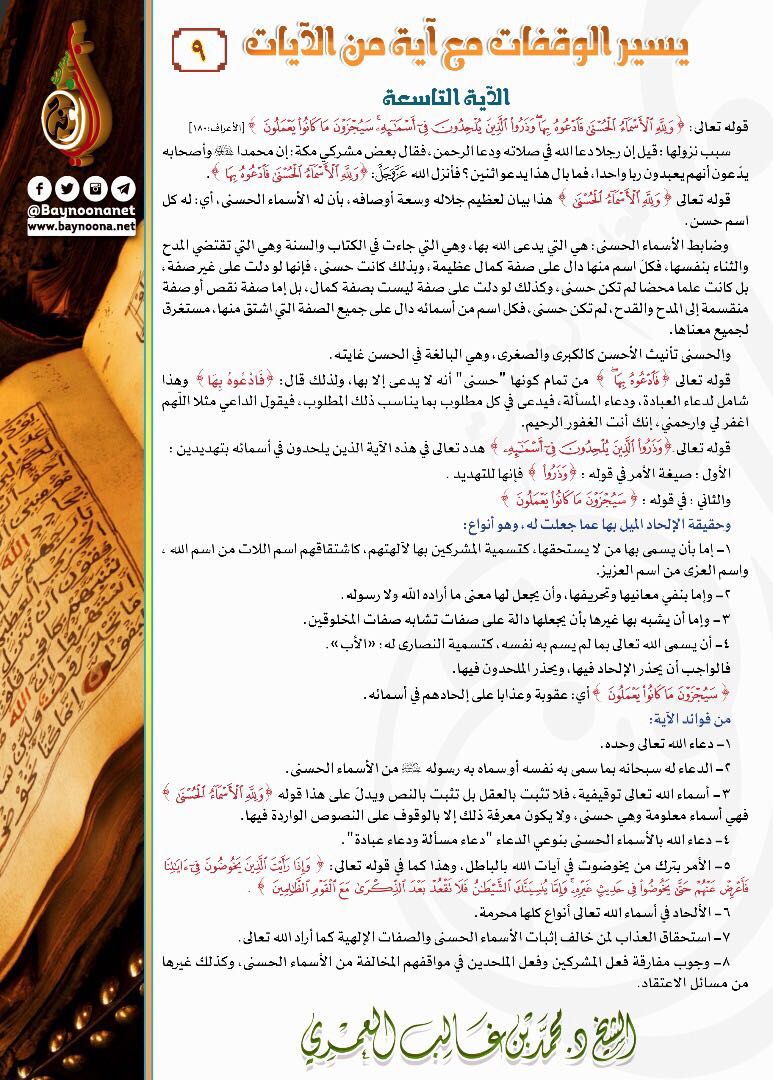 يسير الوقفات مع آية من الآيات
٩
الآية التاسعة
قوله تعالى: ﴿ وَلِلَّهِ الْأَسْمَاءُ الْحُسْنَى فَادْعُوهُ بِهَا وَذَرُوا الَّذِينَ يُلْحِدُونَ فِي أَسْمَائِهِ سَيُجْزَوْنَ مَا كَانُوا يَعْمَلُونَ ﴾ [الأعراف:١٨٠]
سبب نزولها: قيل إن رجلا دعا الله في صلاته ودعا الرحمن، فقال بعض مشركي مكة: إن محمدا ﷺ وأصحابه
يدّعون أنهم يعبدون ربا واحدا، فما بال هذا يدعو اثنين؟ فأنزل الله عَزَّوَجَلَّ: ﴿وَلِلَّهِ الْأَسْمَاءُ الْحُسْنَى فَادْعُوهُ بِهَا ﴾.
قوله تعالى ﴿ وَلِلَّهِ الْأَسْمَاءُ الْحُسْنَى ﴾ هذا بيان لعظيم جلاله وسعة أوصافه، بأن له الأسماء الحسنى، أي: له كل
اسم حسن.
وضابط الأسماء الحسنى: هي التي يدعى الله بها، وهي التي جاءت في الكتاب والسنة وهي التي تقتضي المدح
والثناء بنفسها، فكل اسم منها دال على صفة كمال عظيمة، وبذلك كانت حسنى، فإنها لو دلت على غير صفة،
بل كانت علما محضا لم تكن حسنى، وكذلك لو دلت على صفة ليست بصفة كمال، بل إما صفة نقص أو صفة
منقسمة إلى المدح والقدح، لم تكن حسنى، فكل اسم من أسمائه دال على جميع الصفة التي اشتق منها، مستغرق
لجميع معناها.
والحسنى تأنيث الأحسن كالكبرى والصغرى، وهي البالغة في الحسن غايته.
قوله تعالى ﴿ فَادْعُوهُ بِهَا ﴾ من تمام كونها "حسنى" أنه لا يدعى إلا بها، ولذلك قال: ﴿فَادْعُوهُ بِهَا ﴾ وهذا
شامل لدعاء العبادة، ودعاء المسألة، فيدعى في كل مطلوب بما يناسب ذلك المطلوب، فيقول الداعي مثلا اللّهم
اغفر لي وارحمني، إنك أنت الغفور الرحيم.
قوله تعالى ﴿ وَذَرُوا الَّذِينَ يُلْحِدُونَ فِي أَسْمَائِهِ ﴾ هدد تعالى في هذه الآية الذين يلحدون في أسمائه بتهديدين :
الأول : صيغة الأمر في قوله : ﴿وَذَرُوا ﴾ فإنها للتهديد .
والثاني : في قوله : ﴿ سَيُجْزَوْنَ مَا كَانُوا يَعْمَلُونَ ﴾
وحقيقة الإلحاد الميل بها عما جعلت له، وهو أنواع:
١- إما بأن يسمى بها من لا يستحقها، كتسمية المشركين بها لآلهتهم، كاشتقاقهم اسم اللات من اسم الله ،
واسم العزى من اسم العزيز.
٢- وإما بنفي معانيها وتحريفها، وأن يجعل لها معنى ما أراده الله ولا رسوله.
٣- وإما أن يشبه بها غيرها بأن يجعلها دالة على صفات تشابه صفات المخلوقين.
٤- أن يسمى الله تعالى بما لم يسم به نفسه، كتسمية النصارى له: «الأب».
فالواجب أن يحذر الإلحاد فيها، ويحذر الملحدون فيها.
﴿ سَيُجْزَوْنَ مَا كَانُوا يَعْمَلُونَ ﴾ أي: عقوبة وعذابا على إلحادهم في أسمائه.
من فوائد الآية:
١- دعاء الله تعالى وحده.
٢- الدعاء له سبحانه بما سمى به نفسه أو سماه به رسوله ﷺ من الأسماء الحسنى.
٣- أسماء الله تعالى توقيفية، فلا تثبت بالعقل بل تثبت بالنص ويدلّ على هذا قوله ﴿وَلِلَّهِ الْأَسْمَاءُ الْحُسْنَى ﴾
فهي أسماء معلومة وهي حسنى، ولا يكون معرفة ذلك إلا بالوقوف على النصوص الواردة فيها.
٤- دعاء الله بالأسماء الحسنى بنوعي الدعاء "دعاء مسألة ودعاء عبادة".
٥- الأمر بترك من يخوضوت في آيات الله بالباطل، وهذا كما في قوله تعالى: ﴿ وَإِذَا رَأَيْتَ الَّذِينَ يَخُوضُونَ فِي آيَاتِنَا
فَأَعْرِضْ عَنْهُمْ حَتَّى يَخُوضُوا فِي حَدِيثٍ غَيْرِهِ وَإِمَّا يُنسِيَنَّكَ الشَّيْطَانُ فَلَا تَقْعُدْ بَعْدَ الذِّكْرَى مَعَ الْقَوْمِ الظَّالِمِينَ ﴾ .
٦- الألحاد في أسماء الله تعالى أنواع كلها محرمة.
٧- استحقاق العذاب لمن خالف إثبات الأسماء الحسنى والصفات الإلهية كما أراد الله تعالى.
٨- وجوب مفارقة فعل المشركين وفعل الملحدين في مواقفهم المخالفة من الأسماء الحسنى، وكذلك غيرها
من مسائل الاعتقاد.
الشيخ د. محمد بن غالب العمري
@Baynoonanet
www.baynoona.net